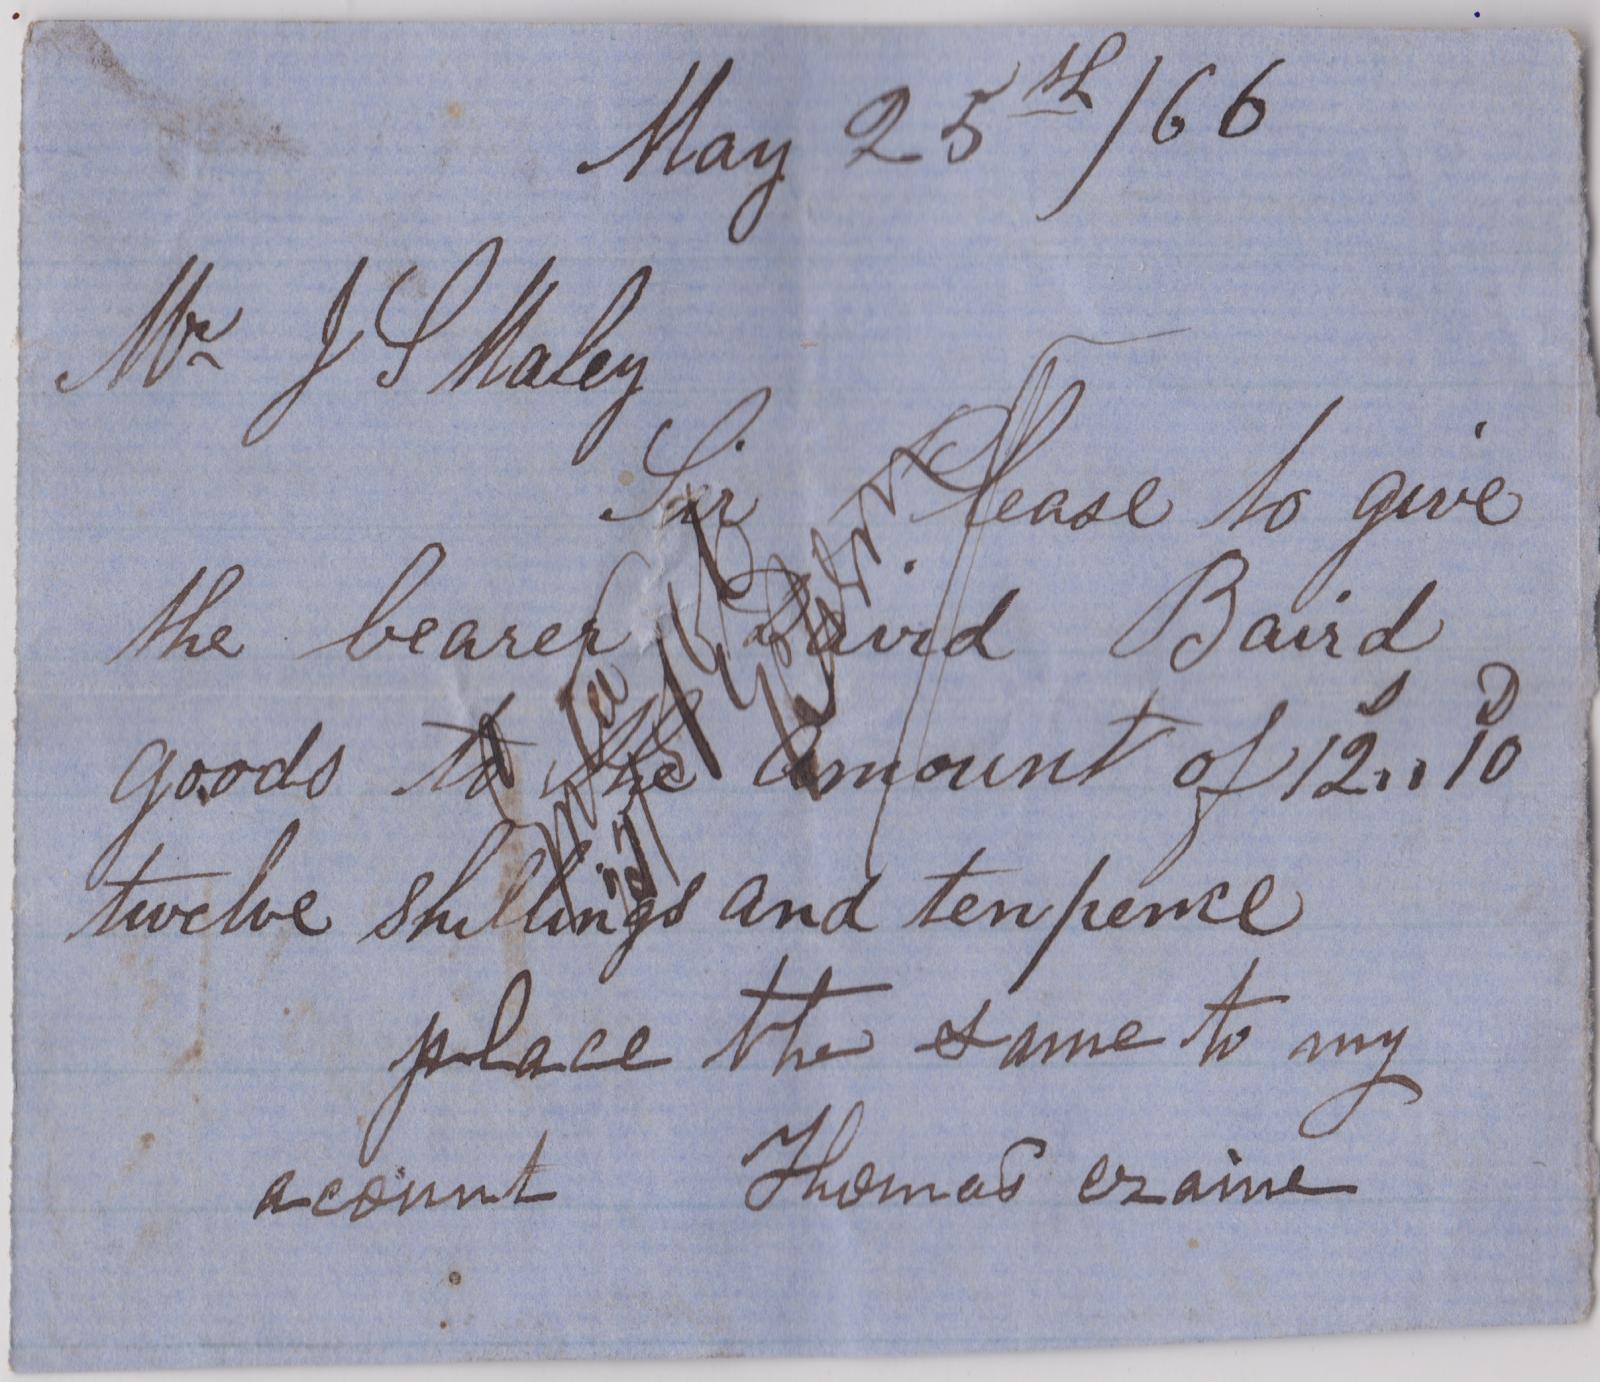 May 25th/66
Mr J S Maley
Sir Please to give
the bearer David Baird
goods to the amount of 12s,, 10D
twelve shillings and tenpence
place the same to my
acount Thomas craine